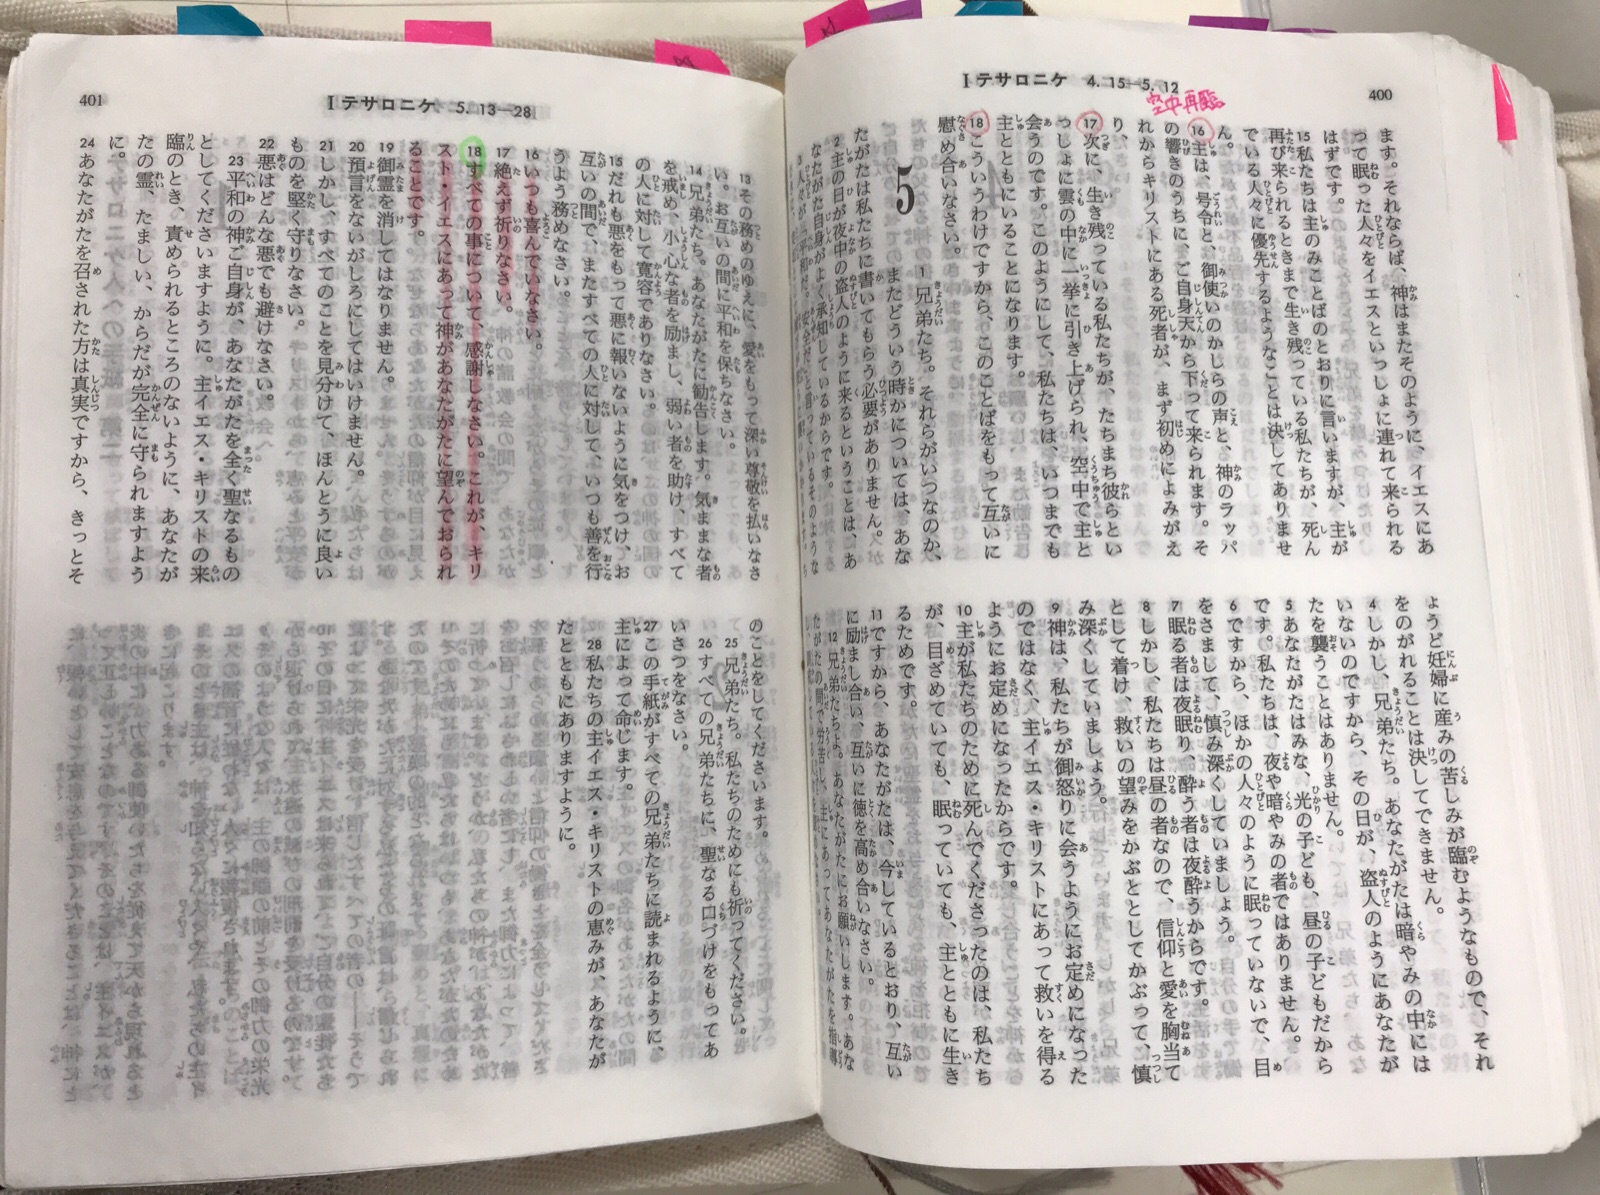 400
Iテサロニケ 4. 15―5. 12
空中再臨
ます。それならば、神はまたそのように、イエスにあ
って眠った人々をイエスといっしょに連れて来られる
はずです。
15私たちは主のみことばのとおりに言いますが、主が
再び来られるときまで生き残っている私たちが、死ん
でいる人々に優先するようなことは決してありませ
ん。
16主は、号令と、御使いのかしらの声と、神のラッパ
の響きのうちに、ご自身天から下って来られます。そ
れからキリストにある死者が、まず初めによみがえ
り、
17次に、生き残っている私たちが、たちまち彼らとい
っしょに雲の中に一挙に引き上げられ、空中で主と
会うのです。このようにして、私たちは、いつまでも
主とともにいることになります。
18こういうわけですから、このことばをもって互いに
慰め合いなさい。
5
1兄弟たち。それらがいつなのか、
またどういう時かについては、あな
たがたは私たちに書いてもらう必要がありません。
2主の日が夜中の盗人のように来るということは、あ
なたがた自身がよく承知しているからです。
3人々が「平和だ。安全だ」と言っているそのような
ようど妊婦に産みの苦しみが臨むようなもので、それ
をのがれることは決してできません。
4しかし、兄弟たち。あなたがたは暗やみの中には
いないのですから、その日が、盗人のようにあなたが
たを襲うことはありません。
5あなたがたはみな、光の子ども、昼の子どもだから
です。私たちは、夜や暗やみの者ではありません。
6ですから、ほかの人々のように眠っていないで、目
をさまして、慎み深くしていましょう。
7眠る者は夜眠り、酔う者は夜酔うからです。
8しかし、私たちは昼の者なので、信仰と愛を胸当て
として着け、救いの望みをかぶととしてかぶって、慎
み深くしていましょう。
9神は、私たちが御怒りに会うようにお定めになった
のではなく、主イエス・キリストにあって救いを得る
ようにお定めになったからです。
10主が私たちのために死んでくださったのは、私たち
が、目ざめていても、眠っていても、主とともに生き
るためです。
11ですから、あなたがたは、今しているとおり、互い
に励まし合い、互いに徳を高め合いなさい。
12兄弟たちよ。あなたがたにお願いします。あな
たがたの間で労苦し、主にあってあなたがたを指導
401
Iテサロニケ 5. 13―28
13その務めのゆえに、愛をもって深い尊敬を払いなさ
い。お互いの間に平和を保ちなさい。
14兄弟たち。あなたがたに勧告します。気ままな者
を戒め、小心な者を励まし、弱い者を助け、すべて
の人に対して寛容でありなさい。
15だれも悪をもって悪に報いないように気をつけ、お
互いの間で、またすべての人に対して、いつも善を行
うよう務めなさい。
16いつも喜んでいなさい。
17絶えず祈りなさい。
18すべての事について、感謝しなさい。これが、キリ
スト・イエスにあって神があなたがたに望んでおられ
ることです。
19御霊を消してはなりません。
20預言をないがしろにしてはいけません。
21しかし、すべてのことを見分けて、ほんとうに良い
ものを堅く守りなさい。
22悪はどんな悪でも避けなさい。
23平和の神ご自身が、あなたがたを全く聖なるもの
としてくださいますように。主イエス・キリストの来
臨のとき、責められるところのないように、あなたが
たの霊、たましい、からだが完全に守られますよう
に。
24あなたがたを召された方は真実ですから、きっとそ
のことをしてくださいます。
25兄弟たち。私たちのためにも祈ってください。
26すべての兄弟たちに、聖なる口づけをもってあ
いさつをなさい。
27この手紙がすべての兄弟たちに読まれるように、
主によって命じます。
28私たちの主イエス・キリストの恵みが、あなたが
たとともにありますように。